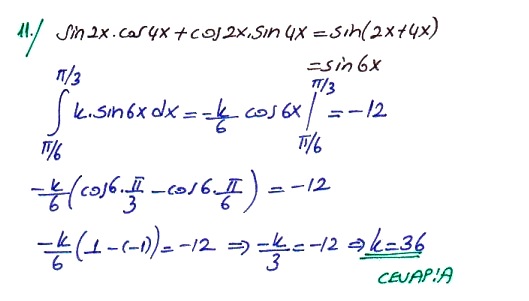 11./ sin2x.cos4x+cos2x.sin4x=sin(2x+4x)
=sin6x
∫_{π/6}^{π/3} k.sin6x dx = -k/6 cos6x |_{π/6}^{π/3} = -12
-k/6 (cos6.π/3 - cos6.π/6) = -12
-k/6 (1-(-1)) = -12 ⇒ -k/3 = -12 ⇒ k=36
CEVAP:A